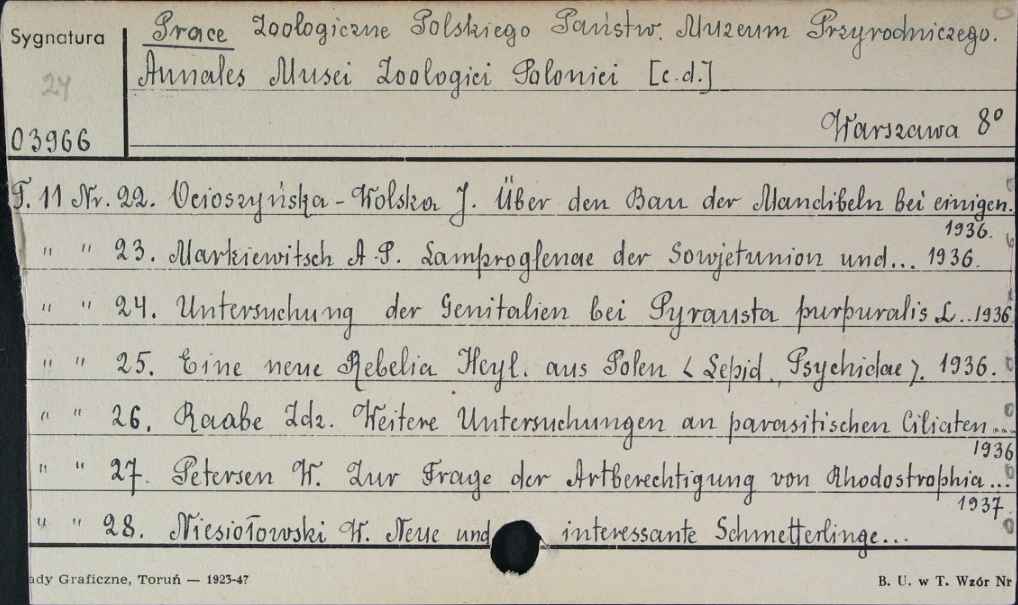 Sygnatura
24
03966
Prace Zoologiczne Polskiego Państw. Muzeum Przyrodniczego.
Annales Musei Zoologici Polonici [c.d.]
Warszawa 8°
T. 11 Nr. 22. Ocioszyńska-Wolska J. Über den Bau der Mandibeln bei einigen.
1936.
" " 23. Markiewitsch A.P. Lamproglenae der Sowjetunion und... 1936.
" " 24. Untersuchung der Genitalien bei Pyrausta purpuralis L.. 1936
" " 25. Eine neue Rebelia Heyl. aus Polen (Lepid., Psychidae). 1936.
" " 26. Raabe Zdz. Weitere Untersuchungen an parasitischen Ciliaten...
1936
" " 27. Petersen W. Zur Frage der Artberechtigung von Rhodostrophia...
1937.
" " 28. Niesiołowski W. Neue und interessante Schmetterlinge...
ady Graficzne, Toruń — 1923-47
B. U. w T. Wzór Nr